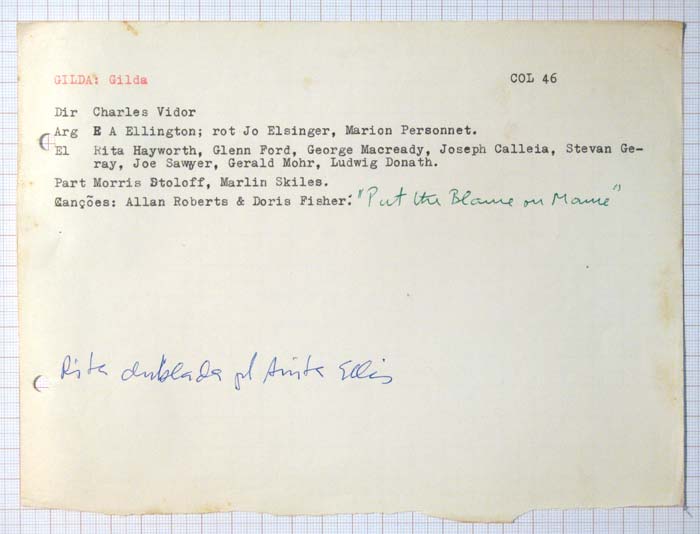 GILDA: Gilda COL 46
Dir Charles Vidor
Arg E A Ellington; rot Jo Elsinger, Marion Personnet.
El Rita Hayworth, Glenn Ford, George Macready, Joseph Calleia, Stevan Ge-
ray, Joe Sawyer, Gerald Mohr, Ludwig Donath.
Part Morris Stoloff, Marlin Skiles.
Canções: Allan Roberts & Doris Fisher: "Put the Blame on Mame"
Rita dublada pl Anita Ellis